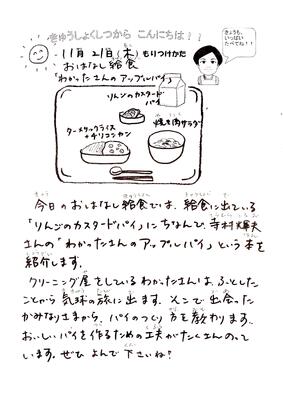 きゅうしょくしつから こんにちは！！
きょうも、
いっぱい
たべてね！！
11月21日(木) もりつけかた
おはなし給食
「わかったさんのアップルパイ」
りんごのカスタード
パイ
焼き肉サラダ
ターメリックライス
+チリコンカン
今日のおはなし給食では、給食に出ている
「りんごのカスタードパイ」にちなんで、寺村輝夫
さんの「わかったさんのアップルパイ」という本を
紹介します。
クリーニング屋をしているわかったさんは、ふとした
ことから気球の旅に出ます。そこで出会った
かみなりさまから、パイのつくり方を教わります。
おいしいパイを作るための工夫がたくさんのって
います。ぜひ よんで下さいね？